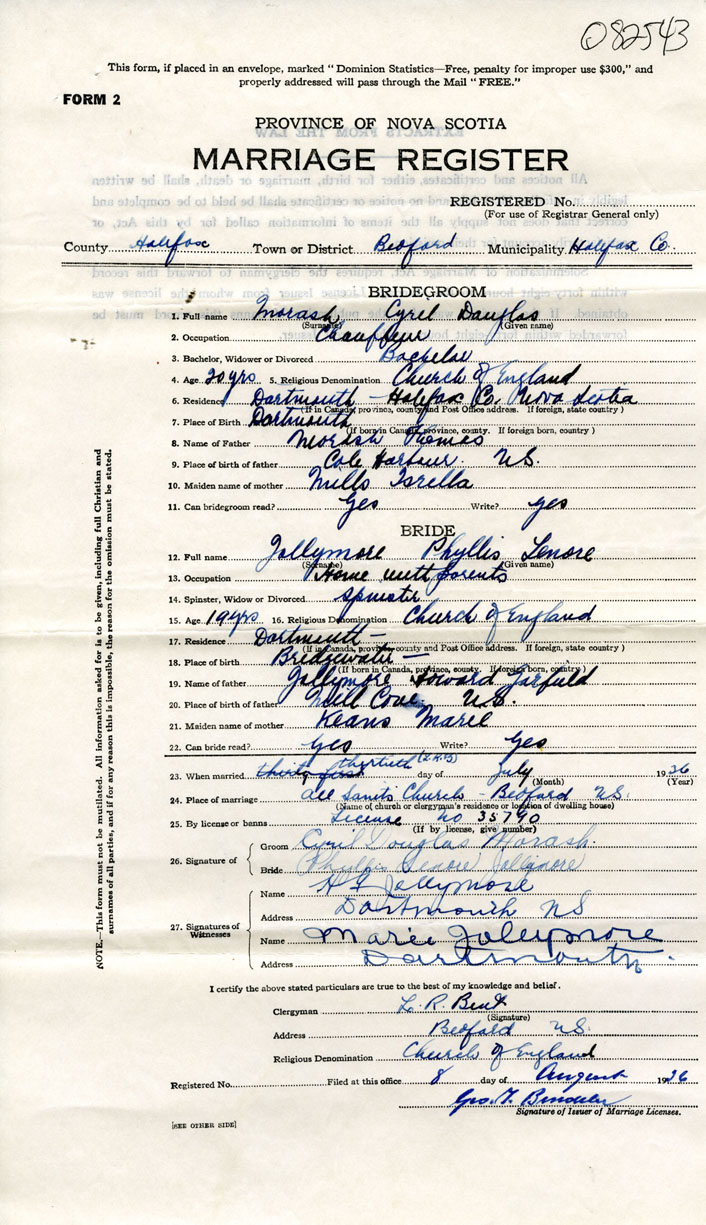 082543
This form, if placed in an envelope, marked "Dominion Statistics—Free, penalty for improper use $300," and
properly addressed will pass through the Mail "FREE."
FORM 2
PROVINCE OF NOVA SCOTIA
MARRIAGE REGISTER
REGISTERED No.
(For use of Registrar General only)
County Halifax Town or District Bedford Municipality Halifax Co.
BRIDEGROOM
1. Full name Morash Cyril Douglas
(Surname) (Given name)
2. Occupation Chauffeur
3. Bachelor, Widower or Divorced Bachelor
4. Age 20 yrs 5. Religious Denomination Church of England
6. Residence Dartmouth - Halifax Co. Nova Scotia
(If in Canada, province, county and Post Office address. If foreign, state country)
7. Place of Birth Dartmouth
(If born in Canada, province, county. If foreign born, country)
8. Name of Father Morash Thomas
9. Place of birth of father Cole Harbour. N.S.
10. Maiden name of mother Mills
11. Can bridegroom read? Yes Write? Yes
BRIDE
12. Full name Jollymore Phyllis Lenore
(Surname) (Given name)
13. Occupation Home with parents
14. Spinster, Widow or Divorced Spinster
15. Age 19 yrs 16. Religious Denomination Church of England
17. Residence Dartmouth -
(If in Canada, province, county and Post Office address. If foreign, state country)
18. Place of birth Bridgewater -
(If born in Canada, province, county. If foreign born, country)
19. Name of father Jollymore Howard Garfield
20. Place of birth of father Mill Cove N.S.
21. Maiden name of mother Keans Marie
22. Can bride read? Yes Write? Yes
23. When married thirty first thirtieth day of July 1936
(Month) (Year)
24. Place of marriage All Saints Church - Bedford NS
(Name of church or clergyman's residence or location of dwelling house)
25. By license or banns License no 35790
(If by license, give number)
26. Signature of
Groom Cyril Douglas Morash.
Bride Phyllis Lenore Jollymore
27. Signatures of Witnesses
Name H G Jollymore
Address Dartmouth NS
Name Marie Jollymore
Address Dartmouth.
I certify the above stated particulars are true to the best of my knowledge and belief.
Clergyman L. R. Bent
(Signature)
Address Bedford N.S.
Religious Denomination Church of England
Registered No. Filed at this office 8 day of August 1936
Geo. T.
Signature of Issuer of Marriage Licenses.
[SEE OTHER SIDE]
NOTE.—This form must not be mutilated. All information asked for is to be given, including full Christian and
surnames of all parties, and if for any reason this is impossible, the reason for the omission must be stated.